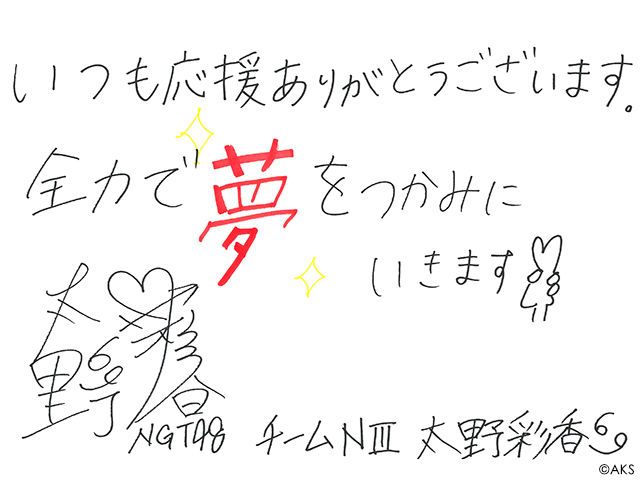 いつも応援ありがとうございます。
全力で夢をつかみに
いきます
太野彩香
NGT48 チームNIII 太野彩香
©AKS